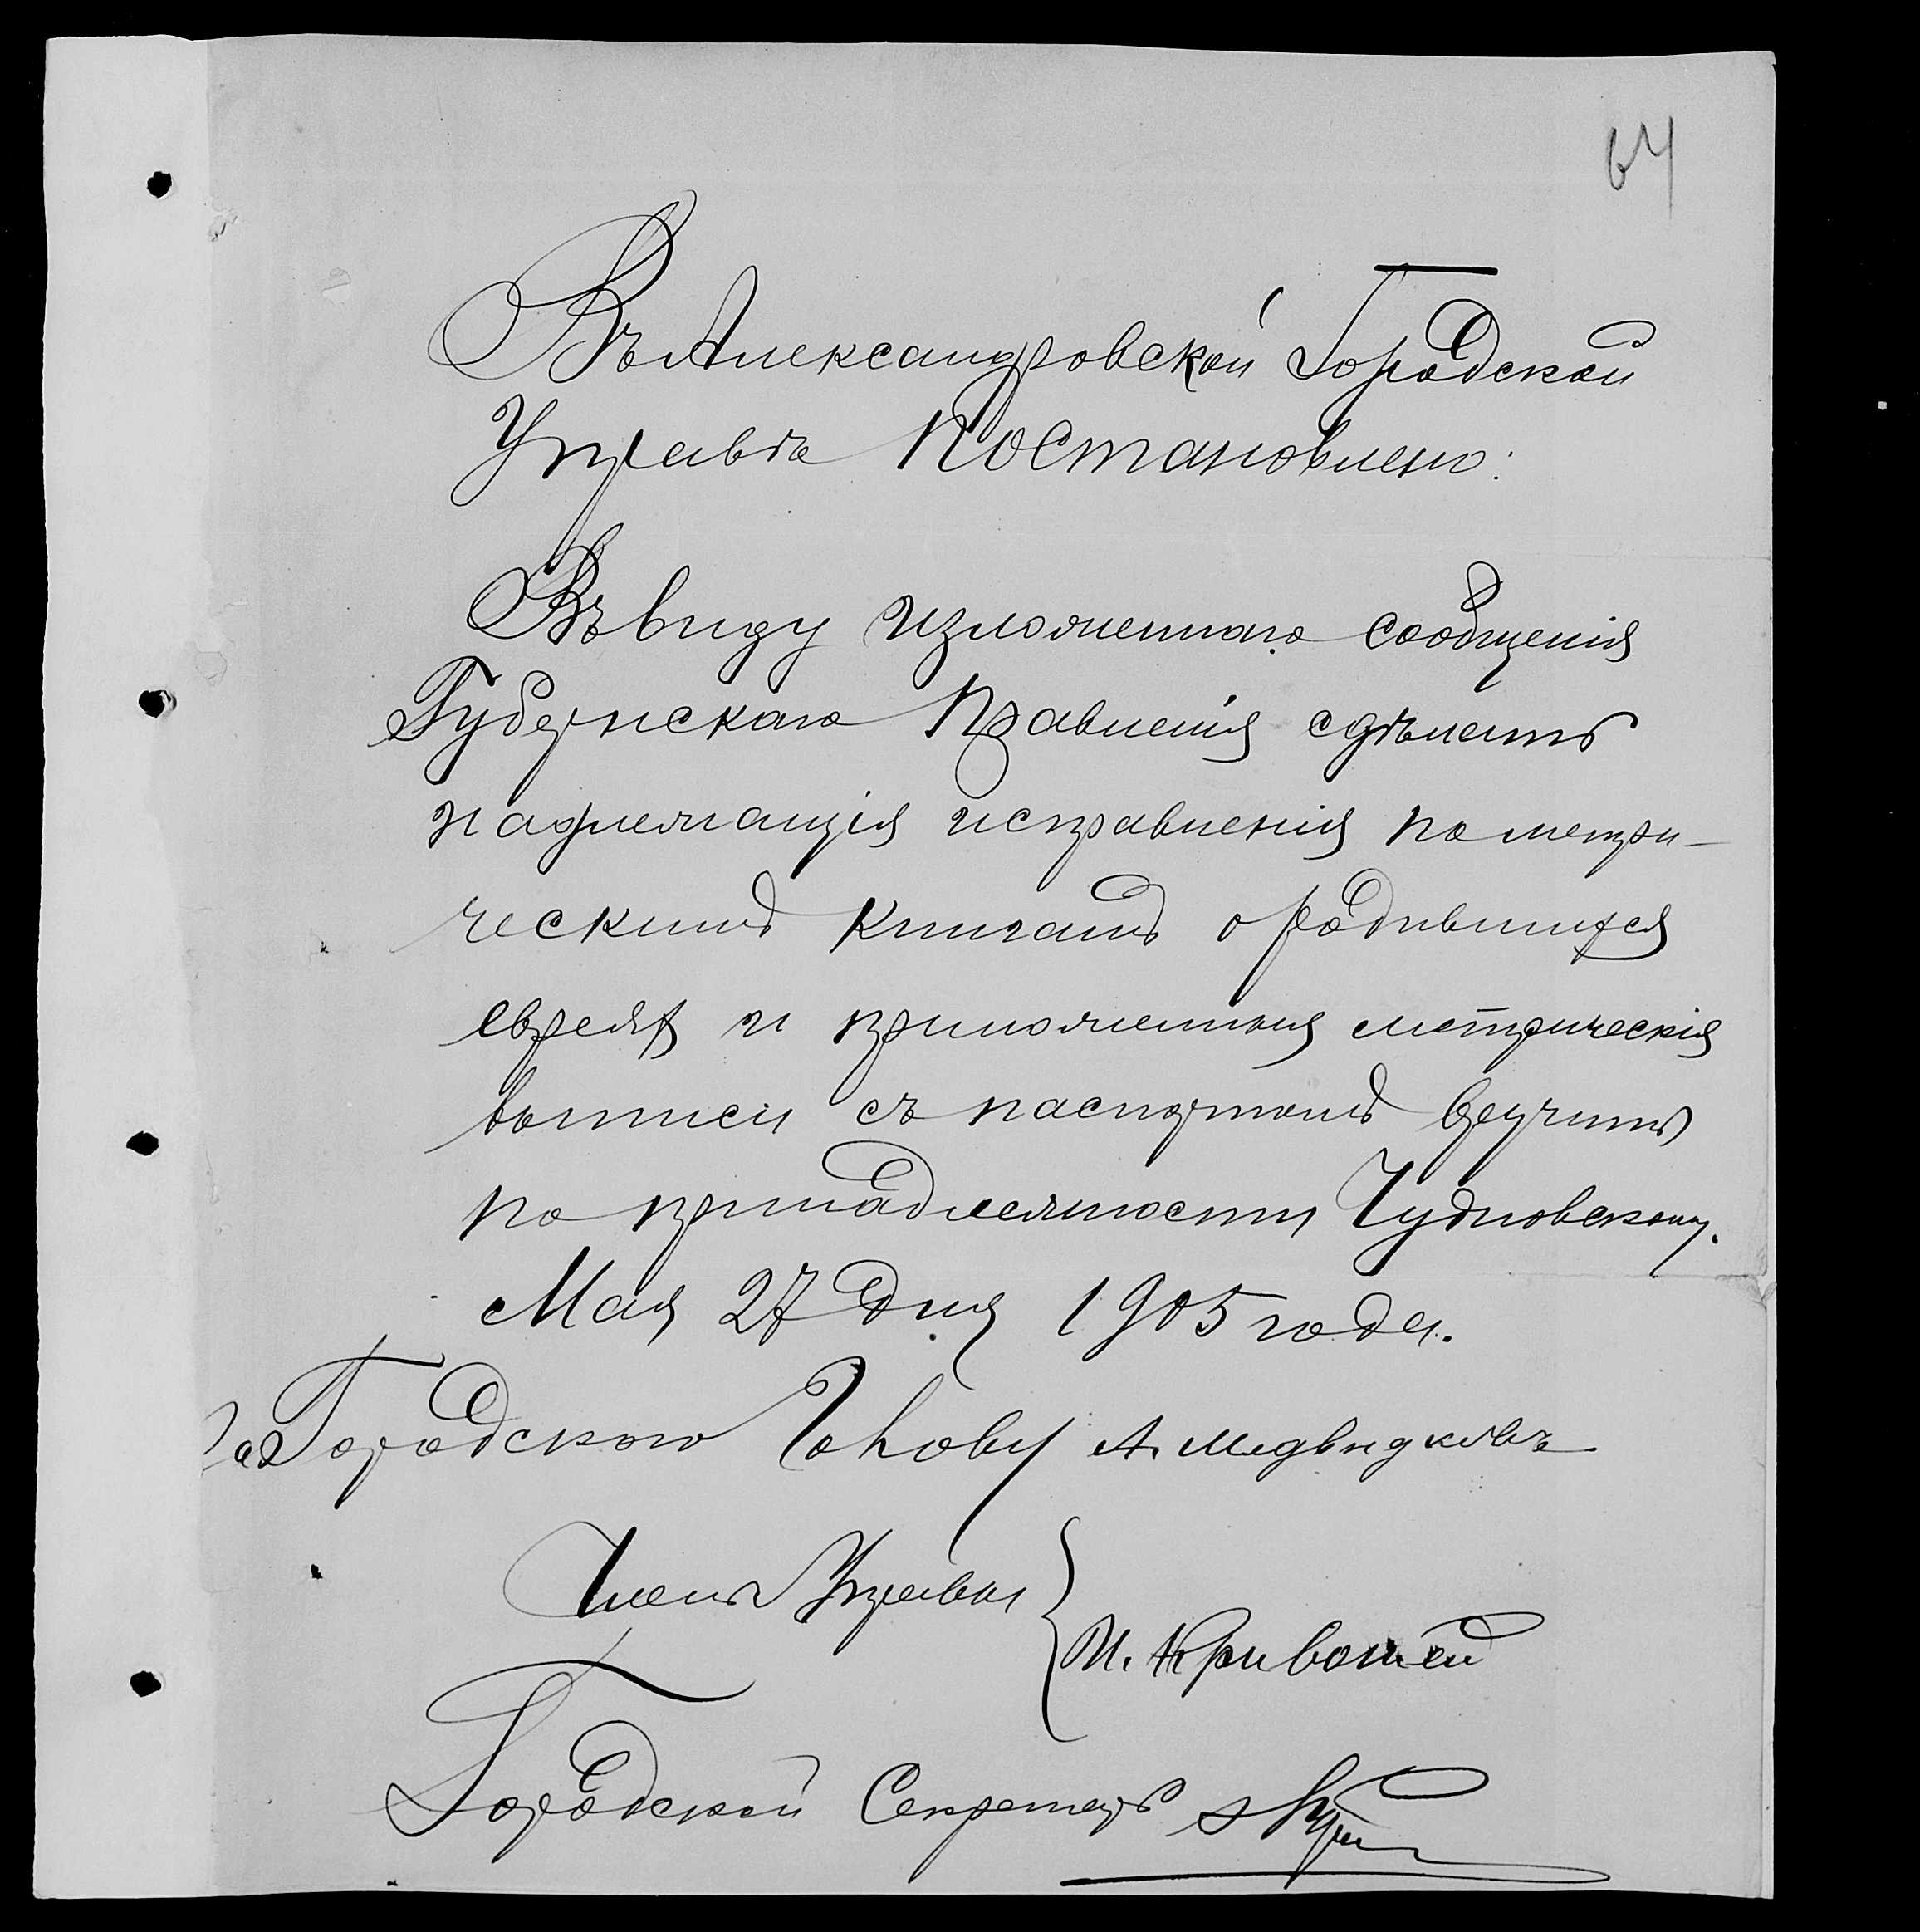 64
Въ Александровской Городской
Управѣ Постановлено:
Въ виду изложеннаго сообщенія
Губернскаго Правленія сдѣлать
надлежащія исправленія по метри-
ческимъ книгамъ о родившихся
евреяхъ и приложенныя метрическія
выписи съ паспортомъ вручить
по принадлежности Чудновскому.
Мая 27 дня 1905 года.
За Городского Голову А. Медвѣдковъ
Членъ Управы
И. Кривошей
Городской Секретарь